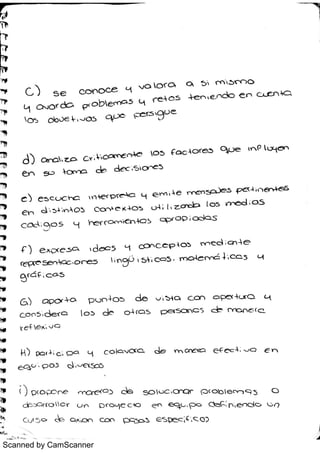 c) se conoce y valora a si mismo
y avorda problemas y retos teniendo en cuenta
los objetivos que persigue
d) analiza criticamente los factores que influyen
en su toma de decisiones
e) escucha interpreta y emite mensajes pertinentes
en distintos contextos utilizando los medios
codigos y herramientas apropiadas
f) expresa ideas y conceptos mediante
representaciones lingüisticas, matematicas y
gráficas
G) aporta puntos de vista con apertura y
considera los de otras personas de manera
reflexiva
H) participa y colavora de manera efectiva en
equipos diversos
i) propone maneras de solucionar problemas o
desarrollar un proyecto en equipo definiendo un
curso de accion con pasos especificos
Scanned by CamScanner